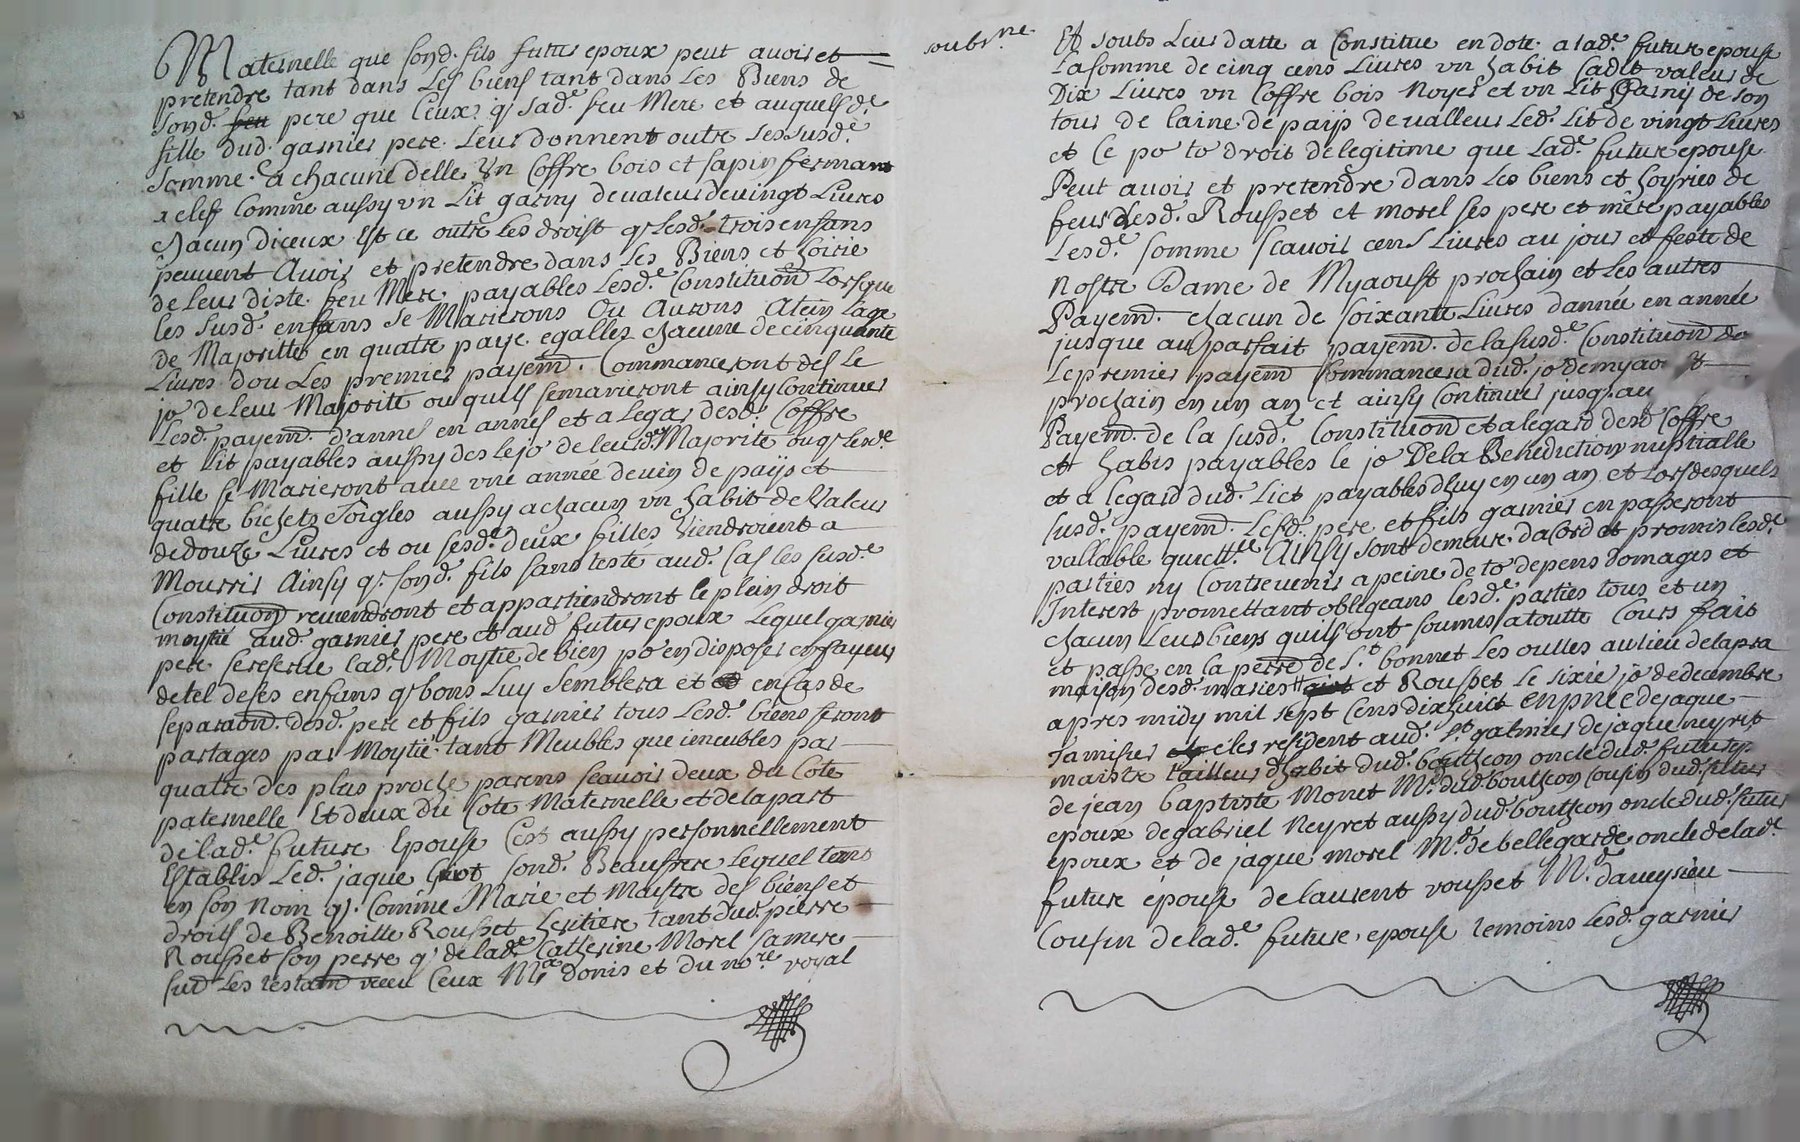 Maternelle que sond. fils futur epoux peut avoir et
pretendre tant dans les biens tant dans les Biens de
sond. feu pere que ceux q. sad.e feu Mere et auquels d.e
fille dud. garnier pere leur donnent outre les susd.e
somme a chacune delle Un Coffre bois et sapin fermant
a clef Comme aussy un Lit garny de valeur de vingt Livres
chacun diceux Est ce outre les droist q. lesd. trois enfans
peuvent Avoir et pretendre dans les Biens et hoirie
de leur diste feu Mere payables lesd.e Constituon Lorsque
les susd. enfans se Marierons Ou Aurons Atein lage
de Majoritte en quatre paye egalles chacune de cinquante
Livres dou Les premier payem. Commanceront des le
jo de leur Majorite ou quils semarieront ainsy continuer
lesd. payem. d'annes en annes et a legar desd. Coffre
et Lit payables aussy des le jo de leurd. Majorite ou q. lesd.e
fille se Marieront avec une année de vin de païs et
quatre bichets soigles aussy a chacun un habit de Valeur
de douze Livres et ou sesd.e deux filles viendroient a
Mourrir Ainsy q. sond. fils sans teste aud. Cas les susd.e
Constituon reviendront et appartiendront le plein droit
moytié aud. garnier pere et aud futur epoux Lequel garnier
pere se reserve lad.e Moytie de bien po en disposer en faveur
de tel de ses enfans q. bons Luy Semblera et en Cas de
separaon. desd. pere et fils garnier tous lesd. biens seront
partages par Moytié tant Meubles que imeubles par
quatre des plus proche parens scavoir deux du Cote
paternelle Et deux du Cote Maternelle et de la part
de lad.e future Epouse Cest aussy personnellement
Establis Led. jaque sond. Beaufrere Lequel tans
en son nom q. Comme Marie et Maistre des biens et
droits de Benoitte Rousset heritiere tant dud. pierre
Rousset son perre q de lad.e Catherine Morel sa mere
sud Les restam receu Ceux Mr. donis et du no.re royal
soubs.ne Et soubs Leur datte a Constitue en dote a lad.e future epouse
La somme de cinq cens Livres un habit Cadit valeur de
Dix Livres un Coffre bois Noyer et un Lit Garny de son
tour de laine de païs de valleur Led. Lit de vingt Livres
et Ce po to droit de legitime que Lad.e future epouse
Peut avoir et pretendre dans les biens et hoyries de
feurs Lesd. Rousset et morel ses pere et mere payables
Lesd.e somme Scavoir cens Livres au jour et feste de
Nostre Dame de Myaoust prochain et les autres
Payem. chacun de soixante Livres dannée en année
jusque au parfait payem. de la susd.e Constituon de
Le premier payem Commancera dud. jo de myaoust
prochain en un an et ainsy continuer jusq. au
Payem. de la susd. Constituon et a legard desd Coffre
et habis payables le jo De la Benediction nuptialle
et a legard dud. Lict payables dhuy en un an et Lors desquels
susd. payem. Lesd. pere et fils garnier en passeront
vallable quict.ce Ainsy sont demeure dacord et promis lesd.e
parties ny Contrevenir a peine de to depens domages et
Interest promettant obligeans lesd.e parties tous et un
chacun Leurs biens quils ont soumis a toutte Cours fait
et passe en la perre de S.t bonnet les oulles au lieu de lapra
maison desd. maries et Rousset le sixie jo de decembre
apres midy mil sept Cens dixhuit en pnce de jaque
Tamisier resident aud. St. galmier de jaque neyret
maistre tailleur dhabit dud. bouthéon oncle dud. futur
de jean baptiste Monet M.d dud. bouthéon Cousin dud. futur
epoux de gabriel Neyret aussy dud. bouthéon oncle dud. futur
epoux et de jaque morel M.d de bellegarde oncle de lad.e
future epouse de laurent rousset M.d daveysieu
Cousin de lad.e future epouse temoins Lesd. garnier